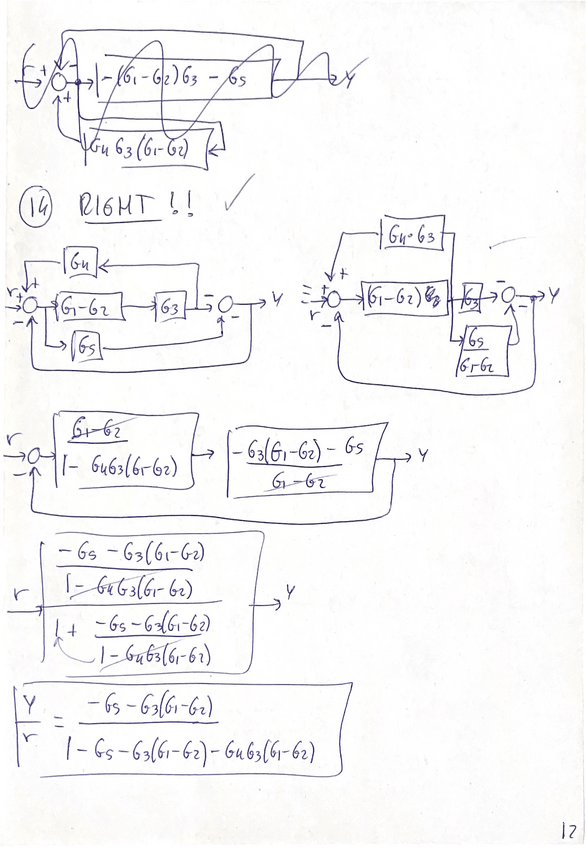 r + - + -(G1-G2)G3 - G5 Y
G4 G3(G1-G2)
14 RIGHT !! ✓
G4 G4·G3
r + + - G1-G2 G3 - - Y
G5
≡ + + r - (G1-G2) G3 - - Y
G5
G1-G2
r - G1-G2
1 - G4G3(G1-G2)
-G3(G1-G2) - G5 Y
G1-G2
-G5 - G3(G1-G2)
1 - G4G3(G1-G2)
r Y
1 + -G5 - G3(G1-G2)
1 - G4G3(G1-G2)
Y/r = -G5 - G3(G1-G2)
1 - G5 - G3(G1-G2) - G4G3(G1-G2)
12